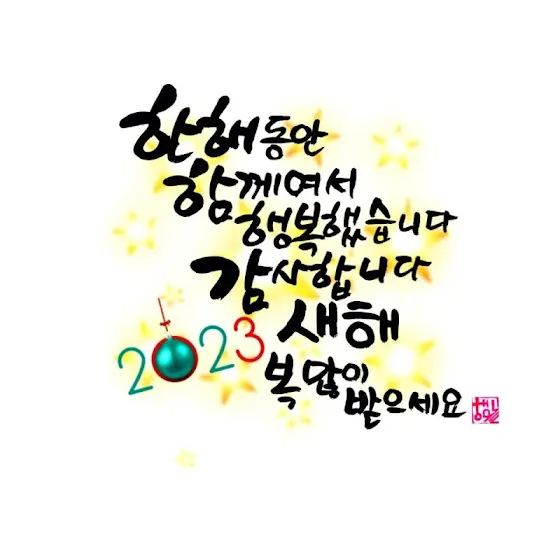 한해동안
함께여서
행복했습니다
감사합니다
2023
새해
복 많이
받으세요